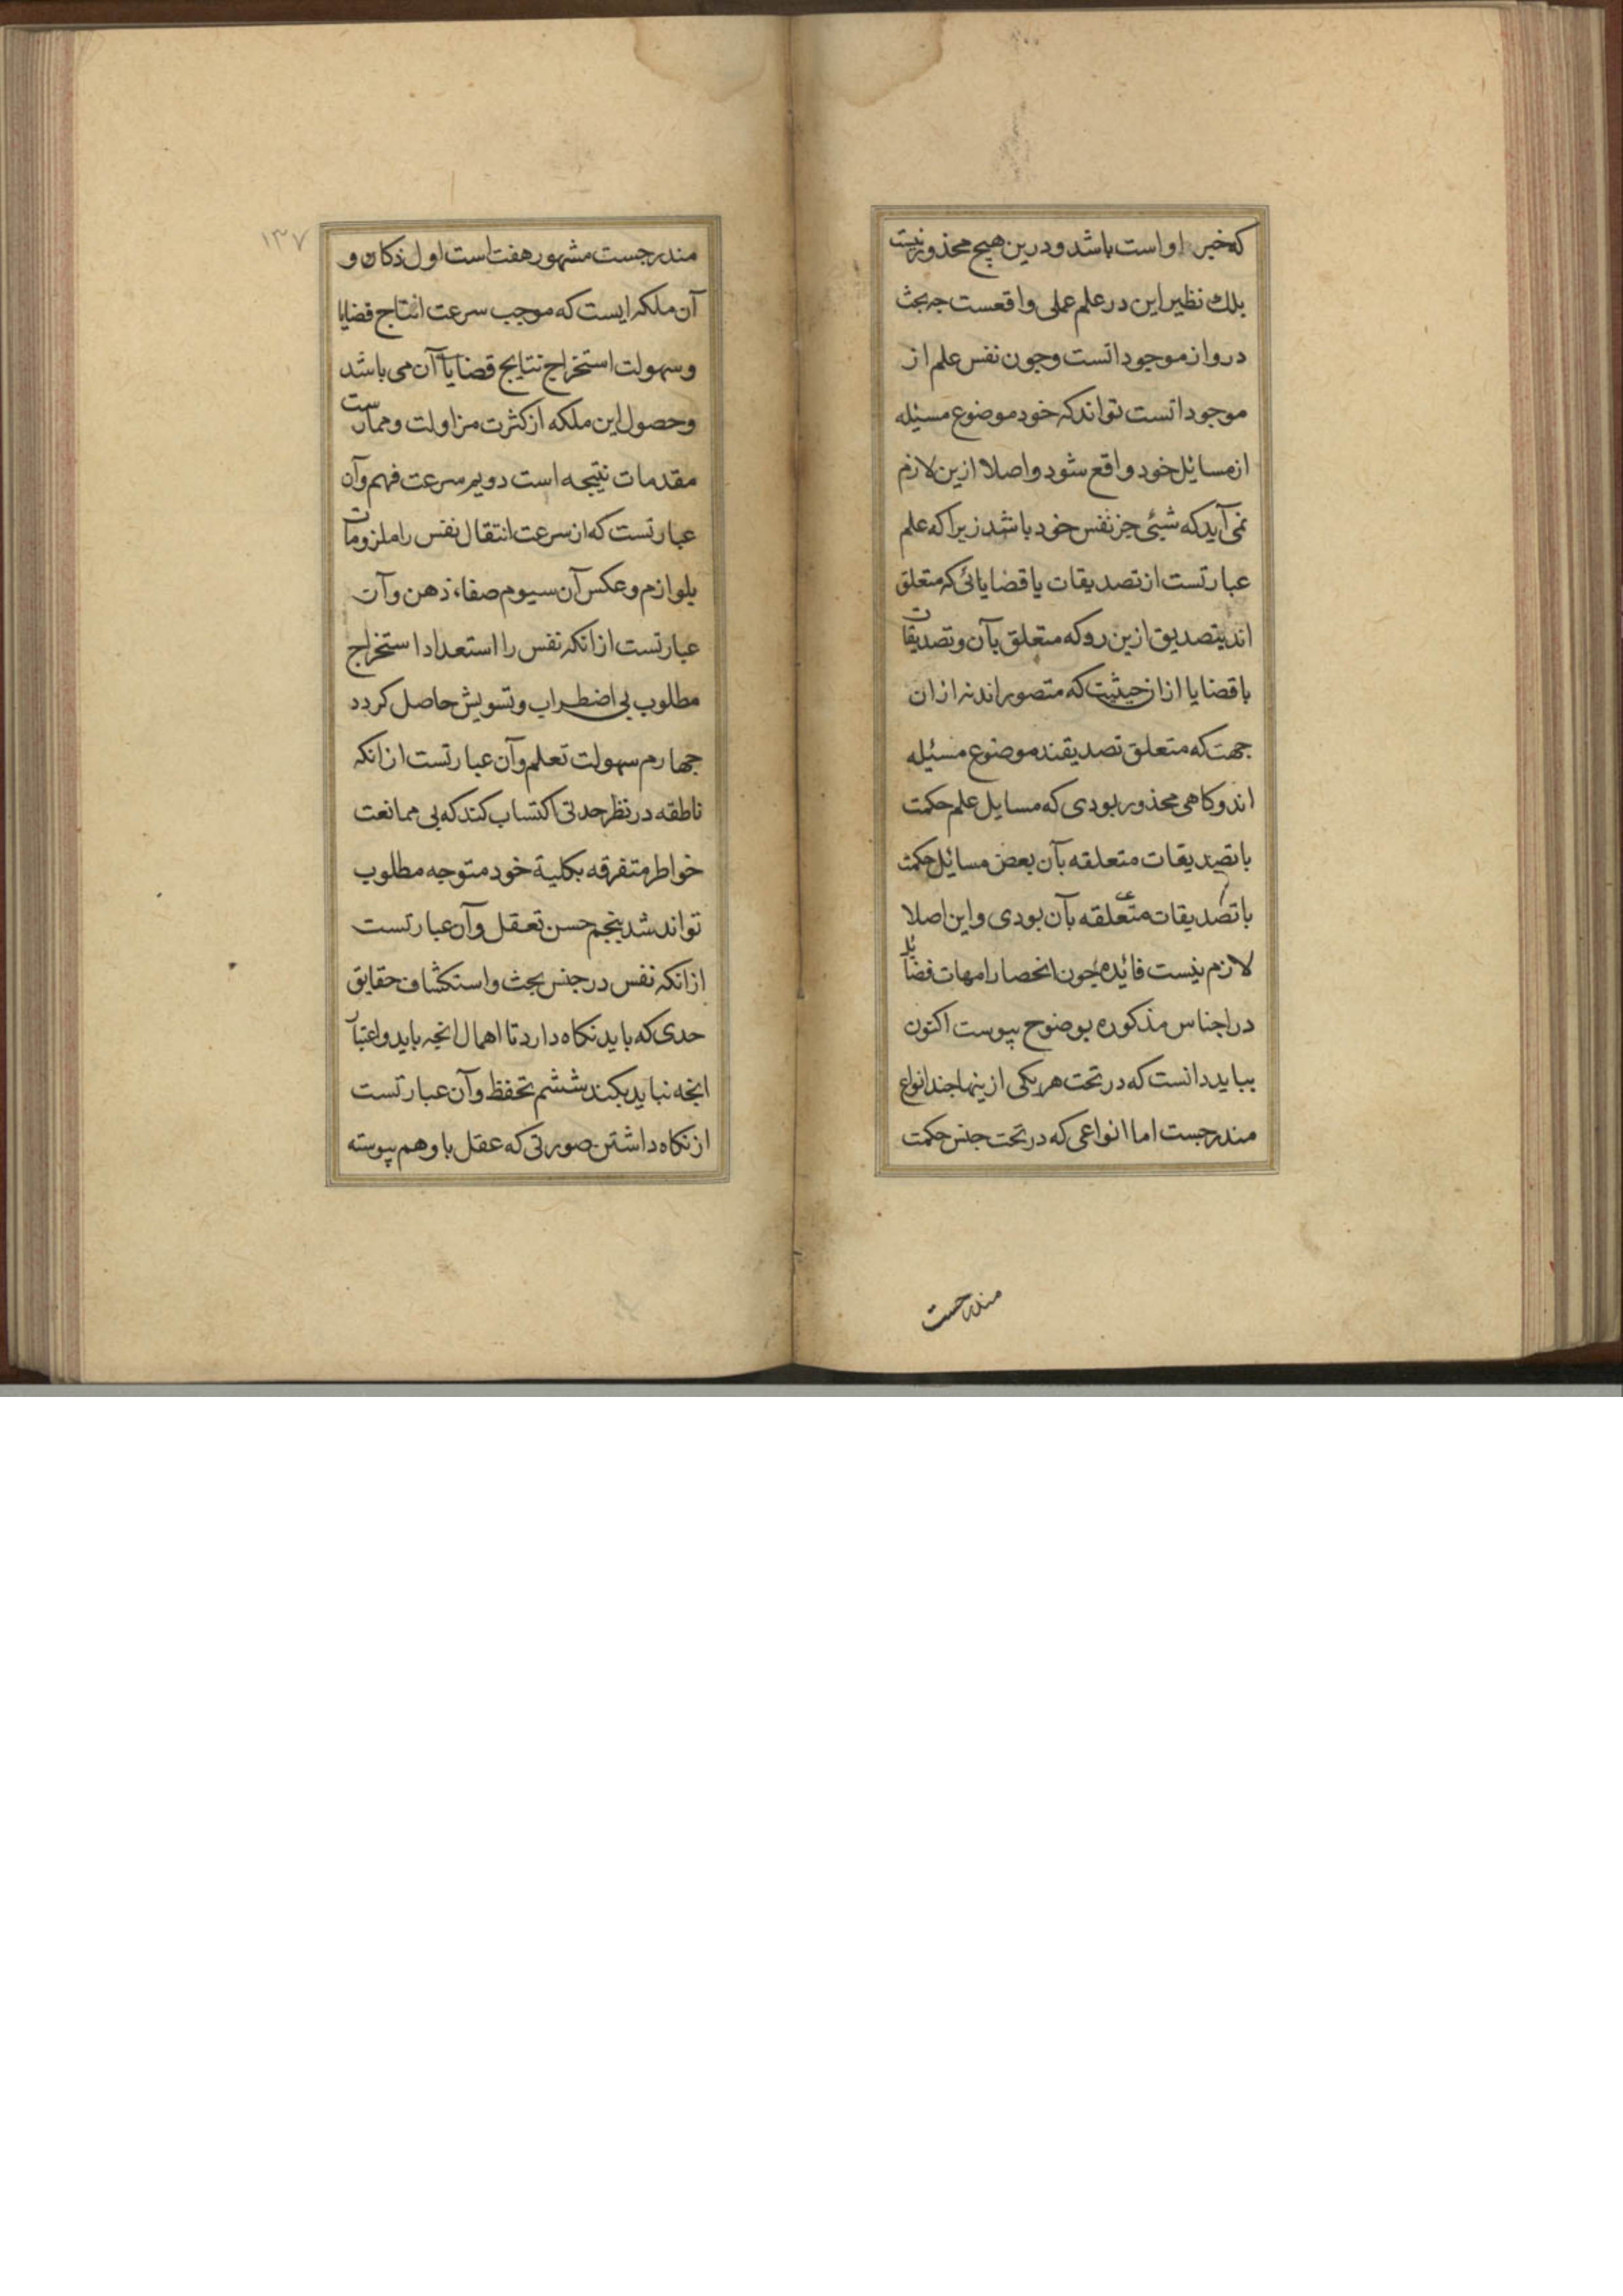 که خبر او است باشد و درین هیچ محذور نیست
بلک نظیر این در علم عملی واقعست جه بحث
درو از موجوداتست وجون نفس علم از
موجوداتست تواند که خود موضوع مسئله
از مسائل خود واقع شود واصلا ازین لازم
نمی آید که شیئی جز نفس خود باشد زیرا که علم
عبارتست از تصدیقات یا قضایائی که متعلق
اند بتصدیق ازین رو که متعلق بآن وتصدیقات
با قضایا از ان حیثیت که متصور اند نه از ان
جهت که متعلق تصدیقند موضوع مسئله
اند وکاهی محذور بودی که مسایل علم حکمت
با تصدیقات متعلقه بآن بعض مسائل حکمت
با تصدیقات متعلقه بآن بودی و این اصلا
لازم نیست فائده جون انحصار امهات فضائل
در اجناس مذکوره بوضوح پیوست اکنون
بباید دانست که در تحت هر یکی ازینها جند انواع
مندرجست اما انواعی که در تحت جنس حکمت
مندرجست
۱۳۷
مندرجست مشهور هفت است اول ذکا و
آن ملکه ایست که موجب سرعت انتاج قضایا
وسهولت استخراج نتایج قضایا آن می باشد
وحصول این ملکه از کثرت مزاولت وممارست
مقدمات نتیجه است دویم سرعت فهم وآن
عبارتست که از سرعت انتقال نفس را ملزومات
بلوازم وعکس آن سیوم صفاء ذهن وآن
عبارتست از انکه نفس را استعداد استخراج
مطلوب بی اضطراب وتسویش حاصل کردد
جهارم سهولت تعلم وآن عبارتست از انکه
ناطقه در نظر حدتی اکتساب کند که بی ممانعت
خواطر متفرقه بکلیة خود متوجه مطلوب
تواند شد پنجم حسن تعقل وآن عبارتست
از انکه نفس در جنس بحث واستکشاف حقایق
حدی که باید نکاه دارد تا اهمال انجه باید واعتبار
انجه نباید بکند ششم تحفظ وآن عبارتست
از نکاه داشتن صورتی که عقل با وهم پیوسته